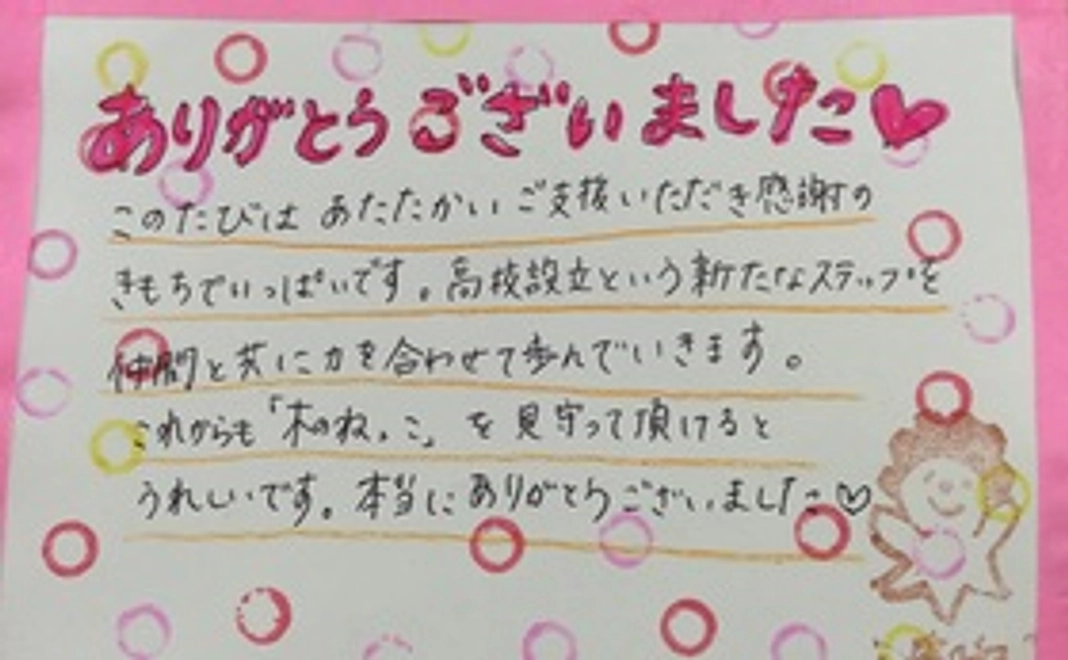 ありがとうございました♥
このたびは あたたかい ご支援いただき感謝の
きもちでいっぱいです。高校設立という新たなステップを
仲間と共に力を合わせて歩んでいきます。
これからも「木のねっこ」を見守って頂けると
うれしいです。本当にありがとうございました♡